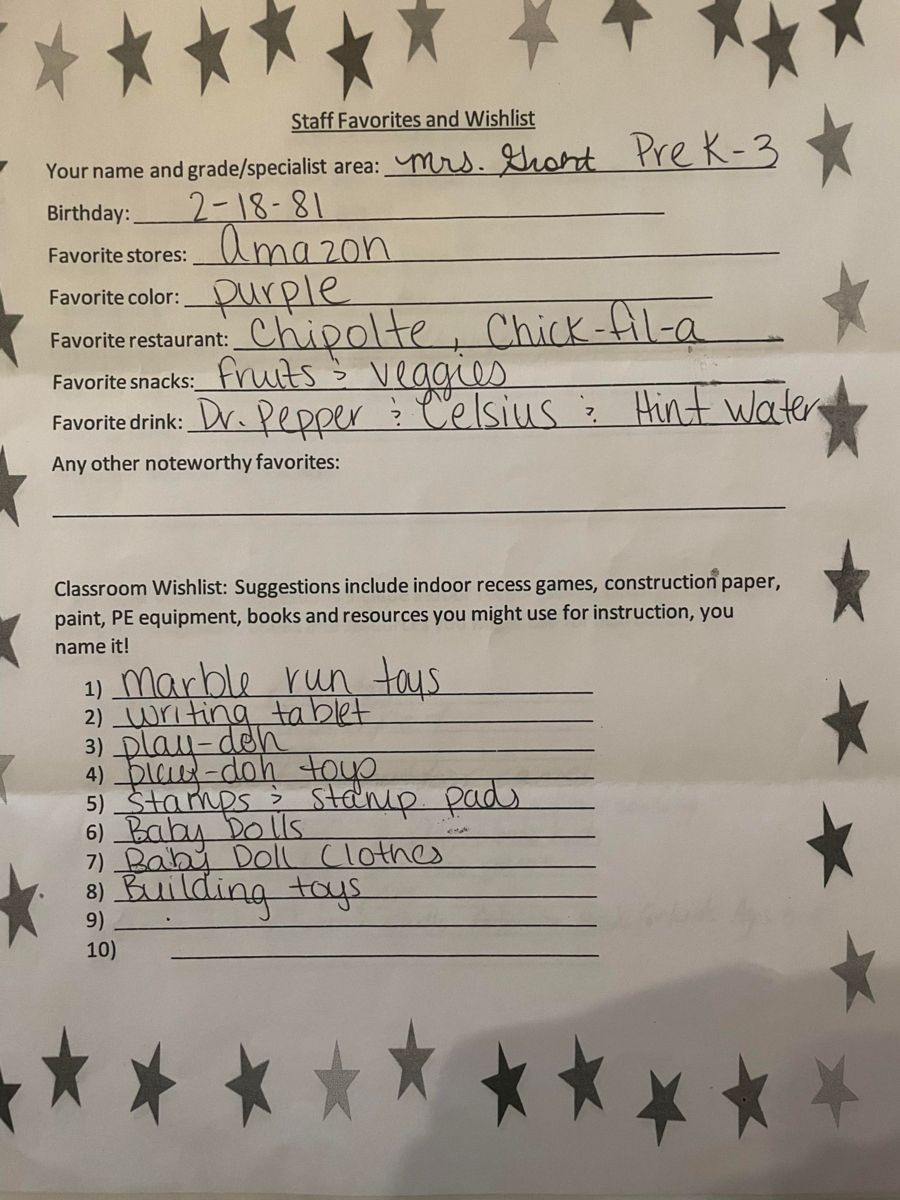 Staff Favorites and Wishlist
Your name and grade/specialist area: Mrs. Short PreK-3
Birthday: 2-18-81
Favorite stores: Amazon
Favorite color: purple
Favorite restaurant: Chipolte, Chick-fil-a
Favorite snacks: fruits & veggies
Favorite drink: Dr. Pepper & Celsius & Hint Water
Any other noteworthy favorites:
Classroom Wishlist: Suggestions include indoor recess games, construction paper,
paint, PE equipment, books and resources you might use for instruction, you
name it!
1) Marble run toys
2) writing tablet
3) play-doh
4) play-doh toys
5) Stamps & stamp pads
6) Baby Dolls
7) Baby Doll Clothes
8) Building toys
9)
10)